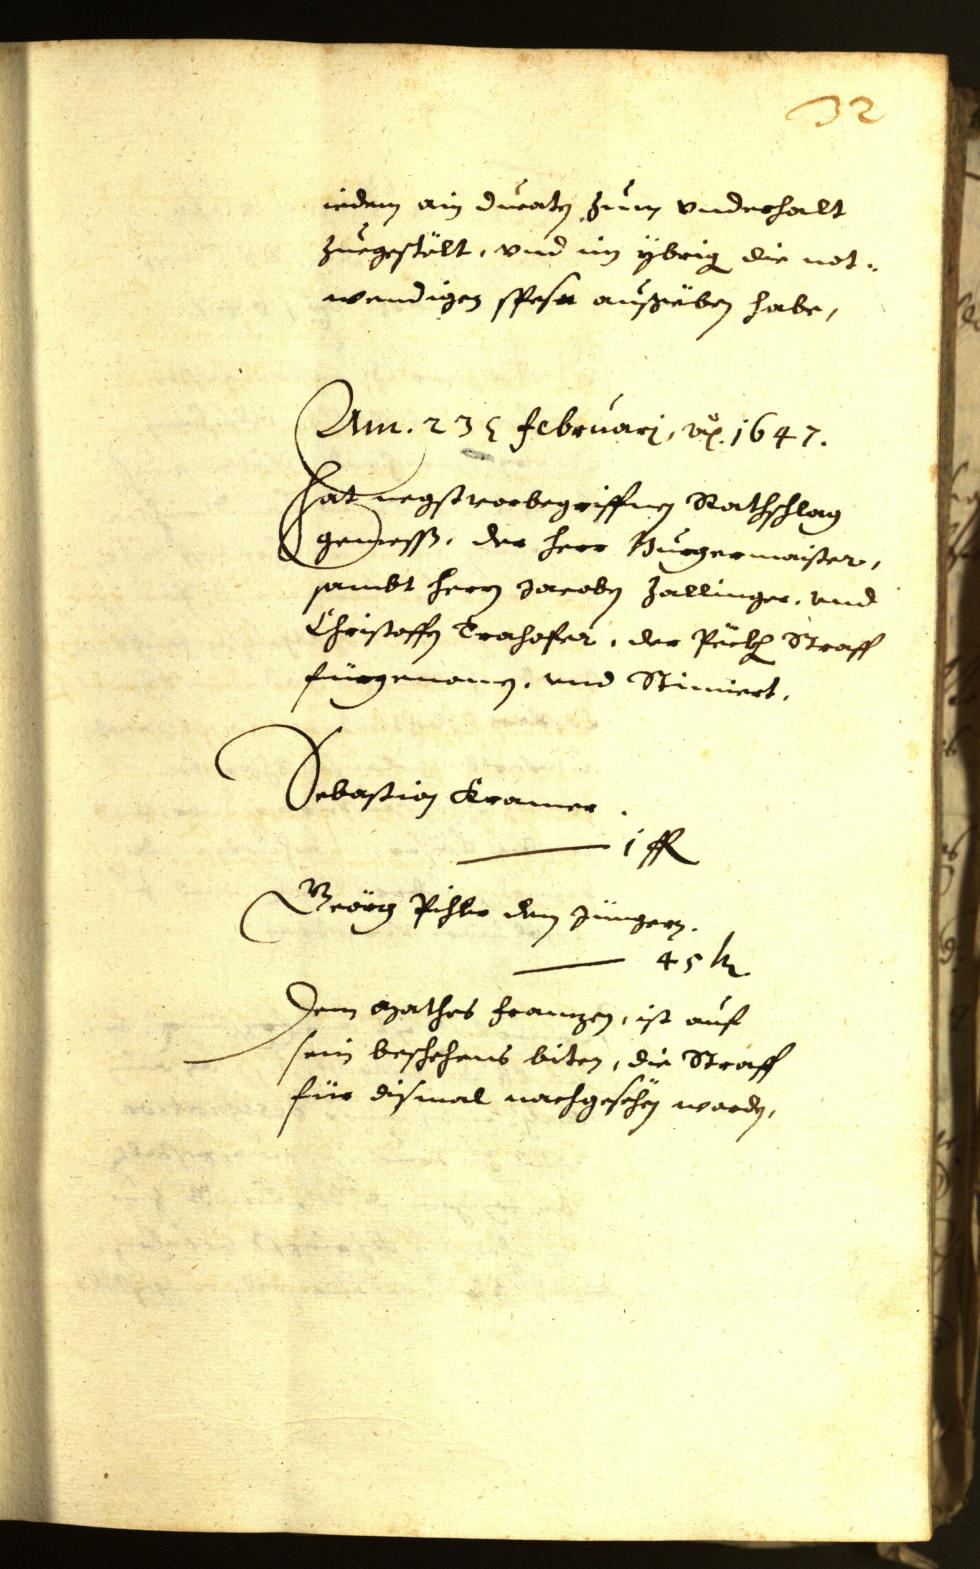 32
iedem ain ducatn zum vnderhalt
zuegestölt, vnd im ÿbrig die not=
wendigen spesa außgeben habe,
Am. 23 februarj, 1647.
Hat negst vorbegriffnen Rathschlag
gemess, der Herr Burgermaister,
sambt Herrn Jacoben Zallinger, vnd
Christoffen Trohofer, der Straff
fürgenomen, vnd Stimiert.
Sebastian Kramer.
1 fl
Geörg Pichler dem Jüngern.
45 kr
Dem Mathes Franzen, ist auf
sein beschehens biten, die Straff
für dismal nachgesehen worden,